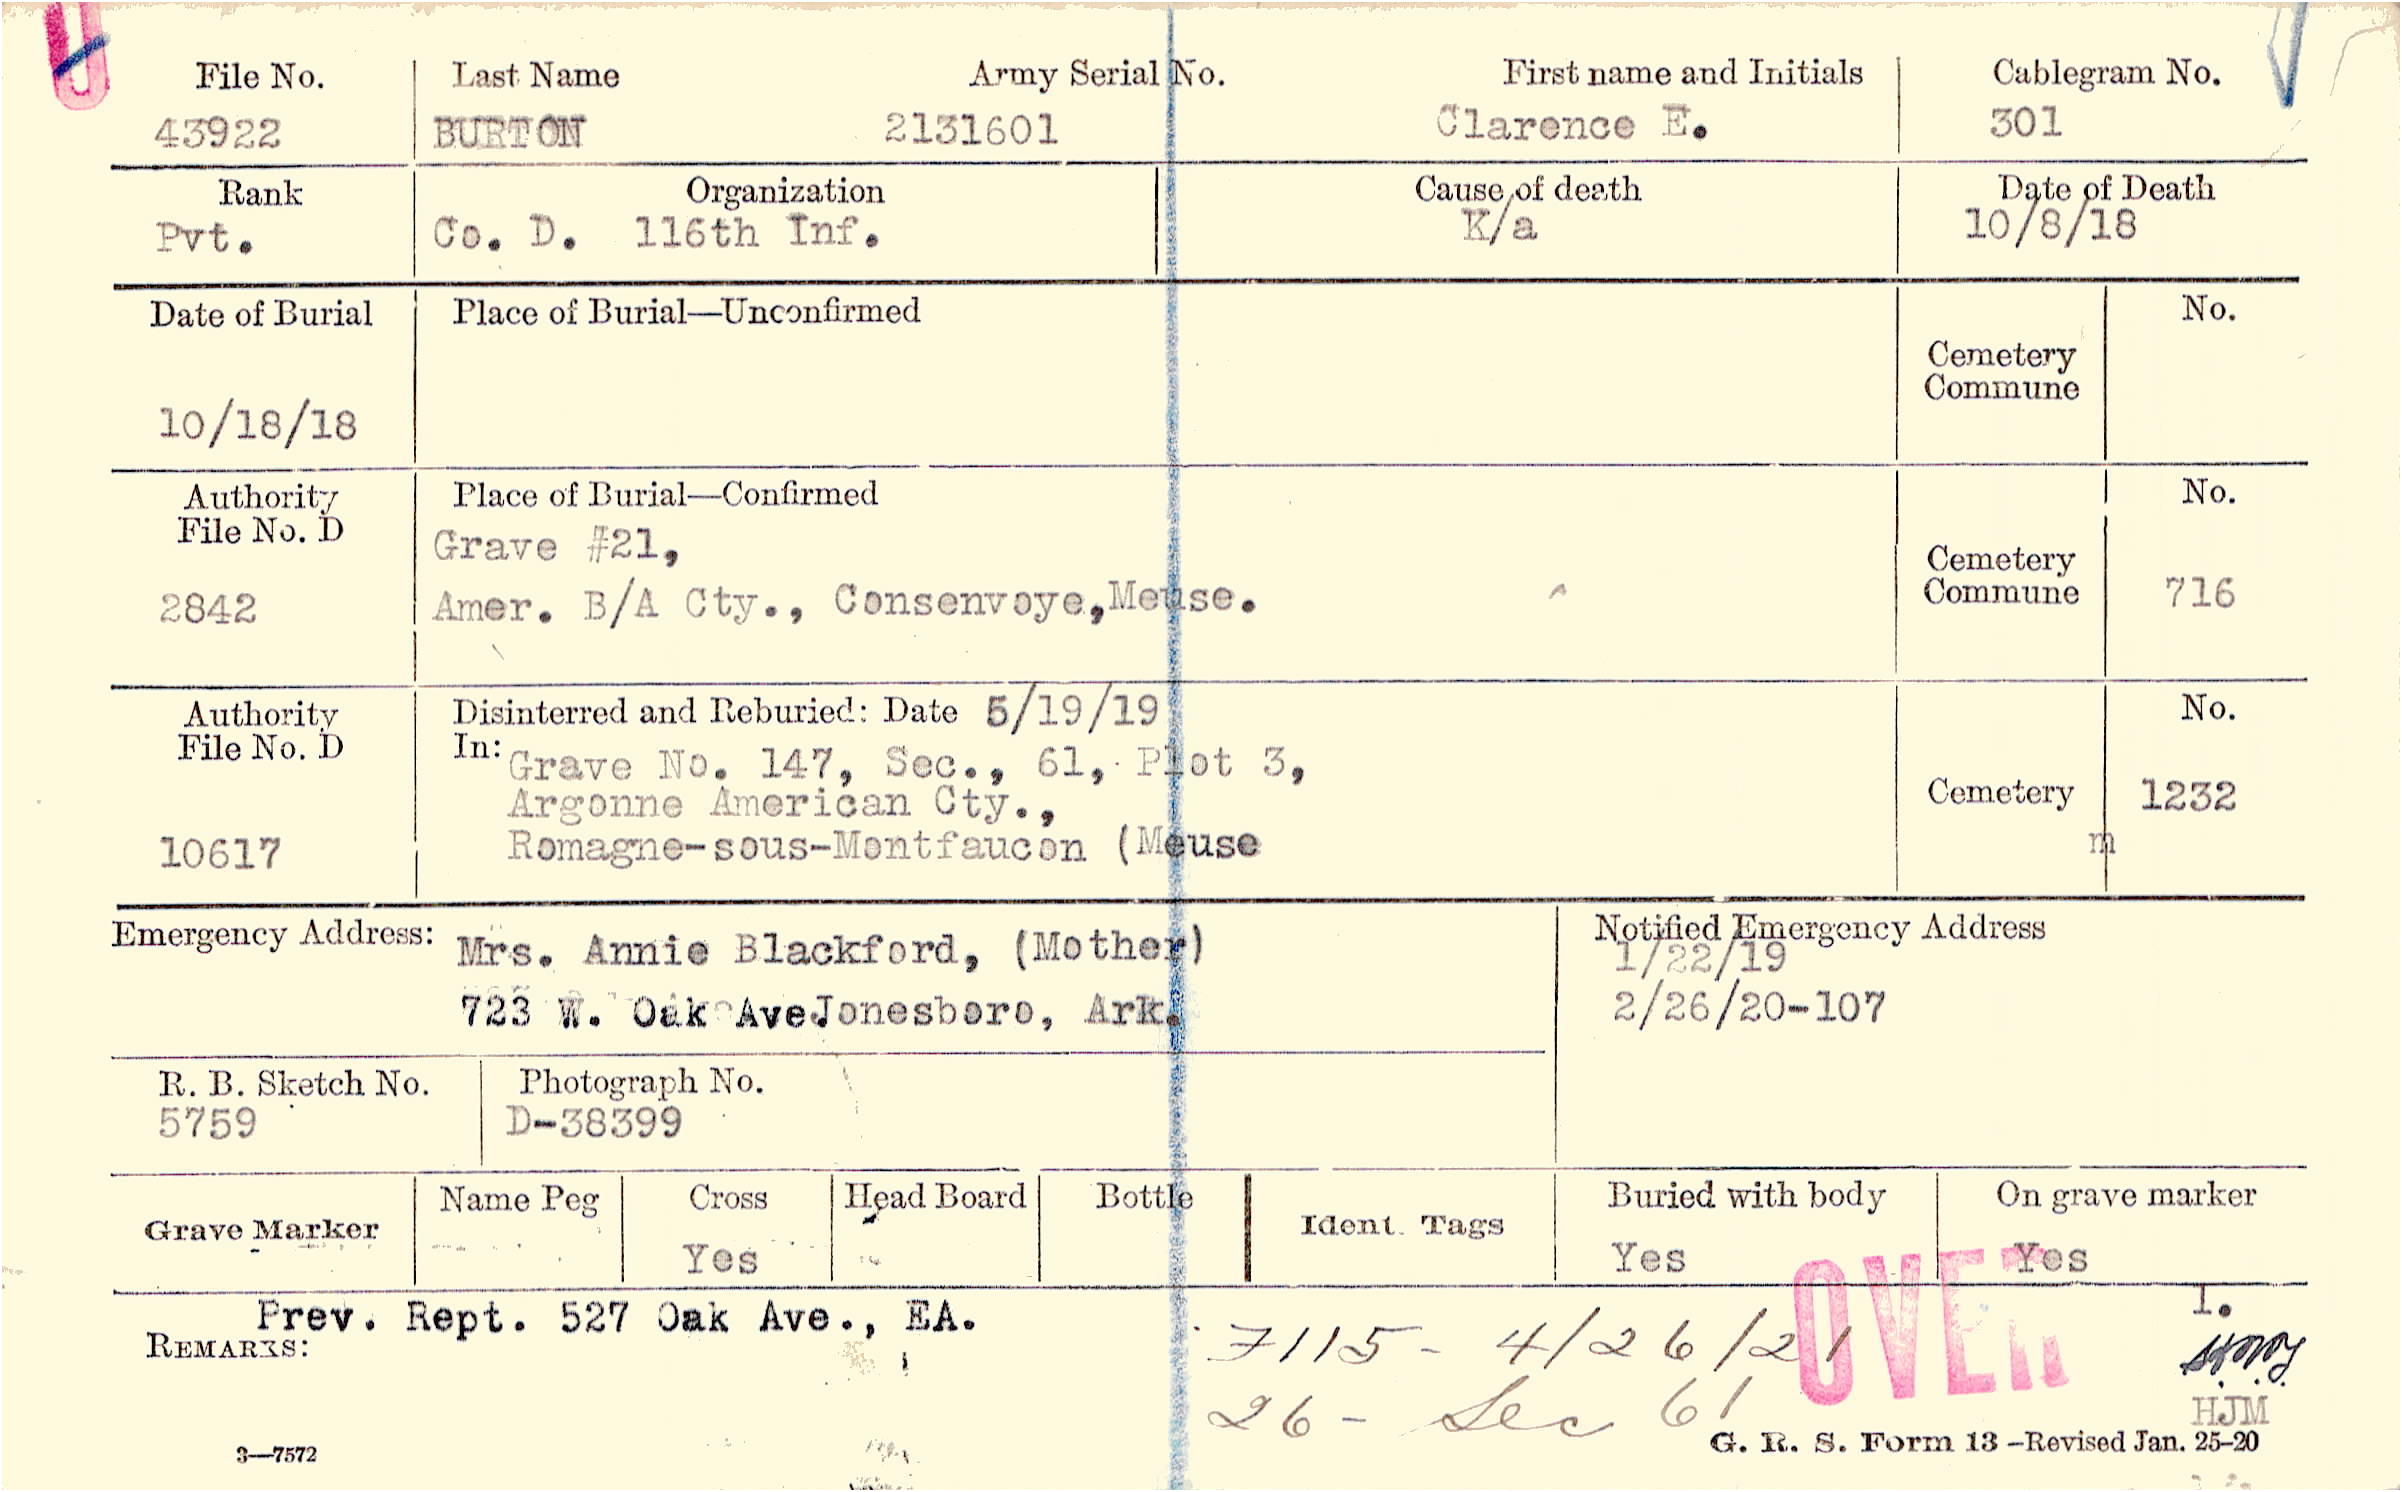 File No. Last Name Army Serial No. First name and Initials Cablegram No.
43922 BURTON 2131601 Clarence E. 301
Rank Organization Cause of death Date of Death
Pvt. Co. D. 116th Inf. K/a 10/8/18
Date of Burial Place of Burial—Unconfirmed No.
Cemetery
Commune
10/18/18
Authority Place of Burial—Confirmed No.
File No. D
Grave #21,
Cemetery
2842 Amer. B/A Cty., Consenvoye, Meuse. Commune 716
Authority Disinterred and Reburied: Date 5/19/19 No.
File No. D In: Grave No. 147, Sec., 61, Plot 3,
Argonne American Cty., Cemetery 1232
10617 Romagne-sous-Montfaucon (Meuse m
Emergency Address: Mrs. Annie Blackford, (Mother) Notified Emergency Address
1/22/19
723 W. Oak Ave Jonesboro, Ark. 2/26/20-107
R. B. Sketch No. Photograph No.
5759 D-38399
Grave Marker Name Peg Cross Head Board Bottle Ident. Tags Buried with body On grave marker
Yes Yes Yes
OVER
Prev. Rept. 527 Oak Ave., EA. 1.
REMARKS: 7115- 4/26/21
26 - Sec 61
HJM
3—7572 G. R. S. Form 13—Revised Jan. 25-20